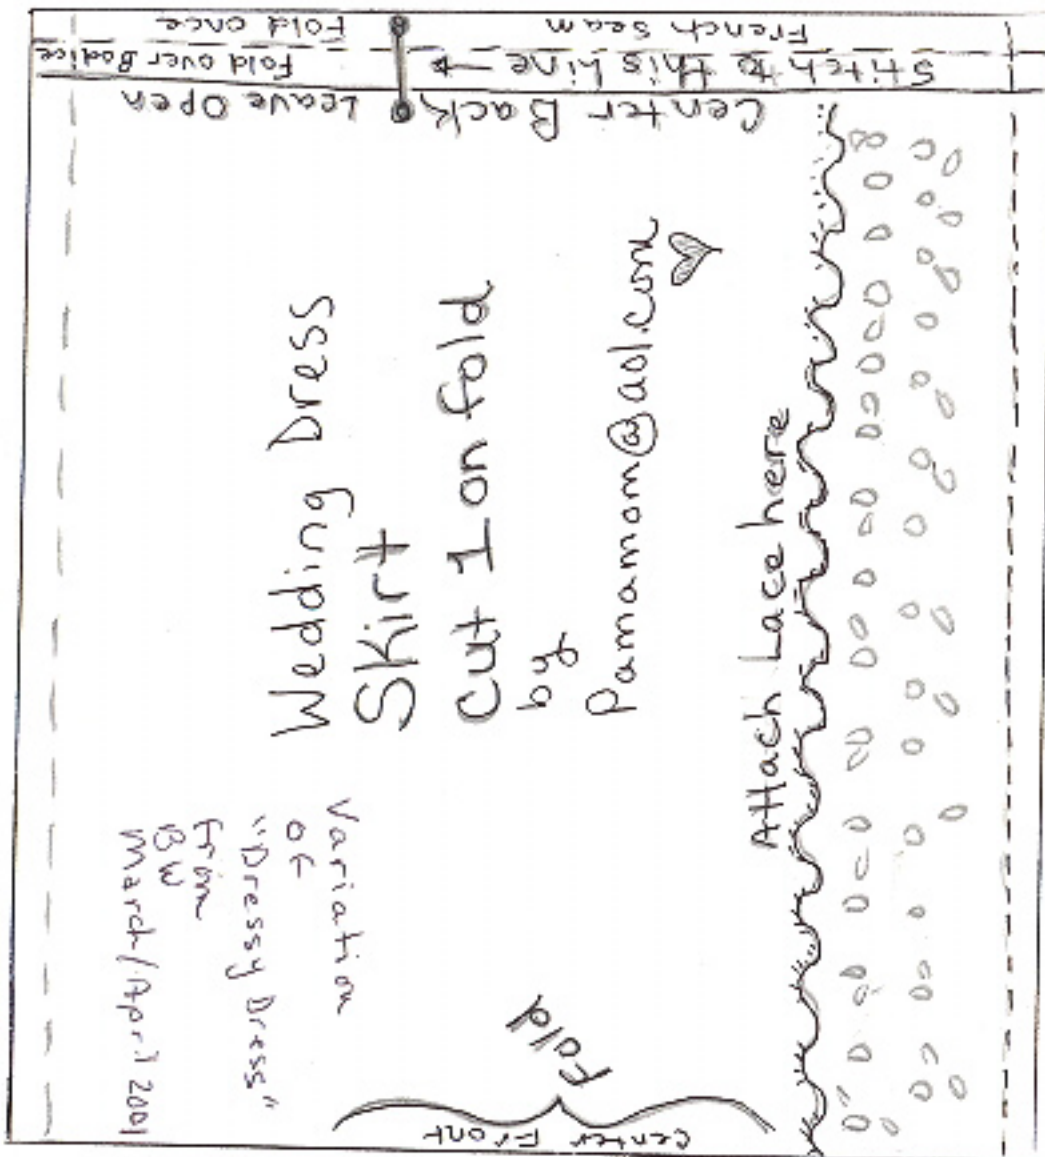 Fold once
French Seam
Fold over Bodice
Stitch to this Line
Leave Open
Center Back
Wedding Dress
Skirt
Cut 1 on fold
by
Pamamom@aol.com
Attach Lace here
Variation
of
"Dressy Dress"
from
BW
March/April 2001
Fold
Center Front